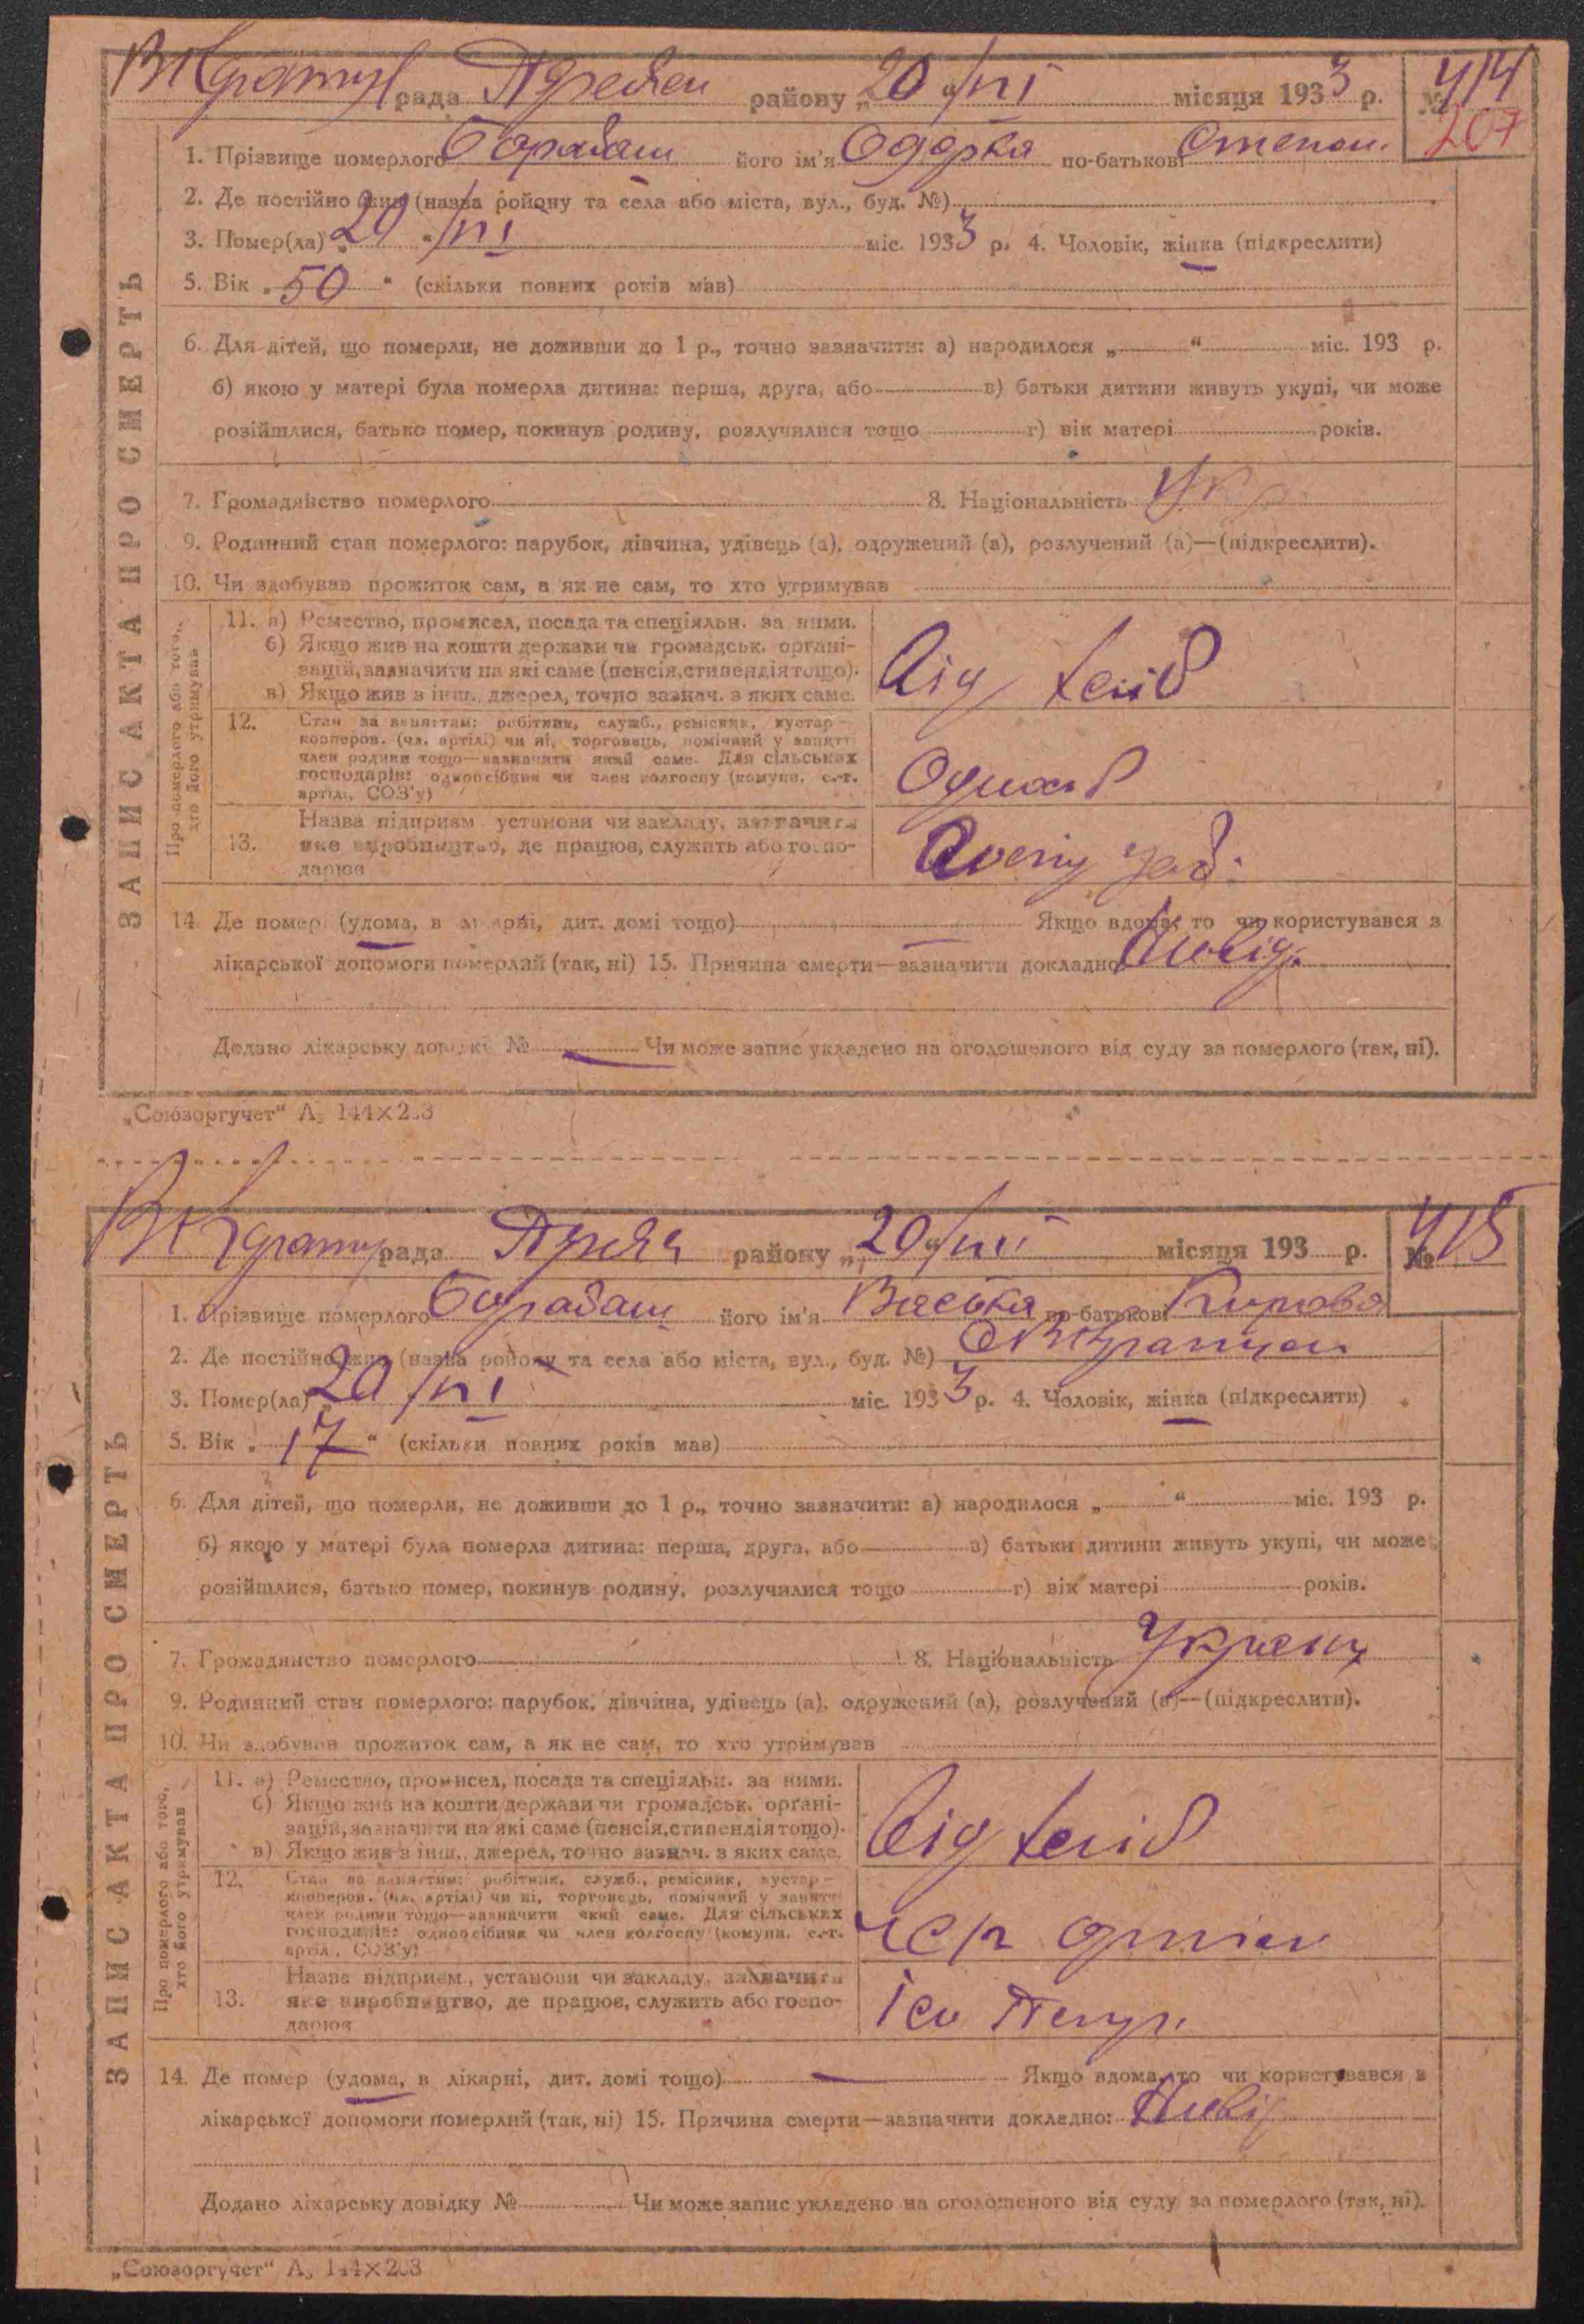 рада района „20 "/VI місяця 1933 р. № 414
207
1. Прізвище померлого Барабаш його ім'я Одарка по-батькові Степан.
2. Де постійно жив (назва району та села або міста, вул., буд. №)
3. Помер(ла) „20 "/VI міс. 1933 р. 4. Чоловік, жінка (підкреслити)
5. Вік „50" (скільки повних років мав)
6. Для дітей, що померли, не доживши до 1 р., точно зазначити: а) народилося „ " міс. 193 р.
б) якою у матері була померла дитина: перша, друга, або в) батьки дитини живуть укупі, чи може
розійшлися, батько помер, покинув родину, розлучилися тощо г) вік матері років.
7. Громадянство померлого 8. Національність Укр
9. Родинний стан померлого: парубок, дівчина, удівець (а), одружений (а), розлучений (а)—(підкреслити).
10. Чи здобував прожиток сам, а як не сам, то хто утримував
ЗАПИС АКТА ПРО СМЕРТЬ
Про померлого або того, хто його утримував
11. а) Ремество, промисел, посада та спеціяльн. за ними.
б) Якщо жив на кошти держави чи громадськ. органі-
зацій, зазначити на які саме (пенсія, стипендія тощо).
в) Якщо жив з інш. джерел, точно зазнач. з яких саме.
12. Стан за заняттям: робітник, служб., ремісник, кустар—
кооперов. (чл. артілі) чи ні, торговець, помічний у занятті
член родини тощо—зазначити який саме. Для сільських
господарів: одноосібник чи член колгоспу (комуни, с.-г.
артіл., СОЗ'у)
13. Назва підприєм установи чи закладу, зазначити
яке виробництво, де працює, служить або госпо-
дарює
14. Де помер (удома, в лікарні, дит. домі тощо) Якщо вдома, то чи користувався з
лікарської допомоги померлий (так, ні) 15. Причина смерти—зазначити докладно:
Додано лікарську довідку № Чи може запис укладено на оголошеного від суду за померлого (так, ні).
„Союзоргучет" А₅ 144×203
рада району „20 "/VI місяця 193 р. № 415
1. Прізвище померлого Барабаш його ім'я Васька по-батькові
2. Де постійно жив (назва району та села або міста, вул., буд. №)
3. Помер(ла) 20 /VI міс. 1933 р. 4. Чоловік, жінка (підкреслити)
5. Вік „17" (скільки повних років мав)
6. Для дітей, що померли, не доживши до 1 р., точно зазначити: а) народилося „ " міс. 193 р.
б) якою у матері була померла дитина: перша, друга, або в) батьки дитини живуть укупі, чи може
розійшлися, батько помер, покинув родину, розлучилися тощо г) вік матері років.
7. Громадянство померлого 8. Національність
9. Родинний стан померлого: парубок, дівчина, удівець (а), одружений (а), розлучений (а)—(підкреслити).
10. Чи здобував прожиток сам, а як не сам, то хто утримував
ЗАПИС АКТА ПРО СМЕРТЬ
Про померлого або того, хто його утримував
11. а) Ремество, промисел, посада та спеціяльн. за ними.
б) Якщо жив на кошти держави чи громадськ. органі-
зацій, зазначити на які саме (пенсія, стипендія тощо).
в) Якщо жив з інш. джерел, точно зазнач. з яких саме.
12. Стан за заняттям: робітник, служб., ремісник, кустар—
кооперов. (чл. артілі) чи ні, торговець, помічний у занятті
член родини тощо—зазначити який саме. Для сільських
господарів: одноосібник чи член колгоспу (комуни, с.-г.
артіл., СОЗ'у)
13. Назва підприєм., установи чи закладу, зазначити
яке виробництво, де працює, служить або госпо-
дарює
14. Де помер (удома, в лікарні, дит. домі тощо) Якщо вдома, то чи користувався з
лікарської допомоги померлий (так, ні) 15. Причина смерти—зазначити докладно:
Додано лікарську довідку № Чи може запис укладено на оголошеного від суду за померлого (так, ні).
„Союзоргучет" А₅ 144×203